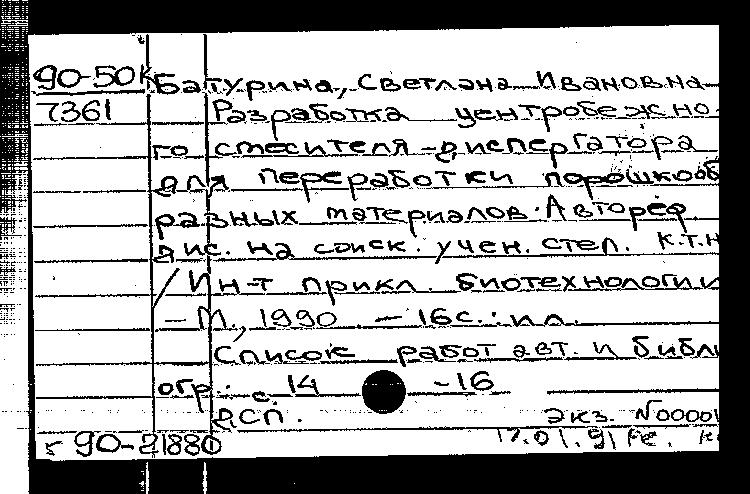 90-50К Батурина, Светлана Ивановна
7361 Разработка центробежно-
го смесителя-диспергатора
для переработки порошкооб
разных материалов. Автореф.
дис. на соиск. учен. степ. к.т.н
/ Ин-т прикл. биотехнологии
– М., 1990. – 16с.: ил.
Список работ авт. и библи
огр.: с. 14 -16
ДСП. Экз. N00001
90-21880 17.01.91